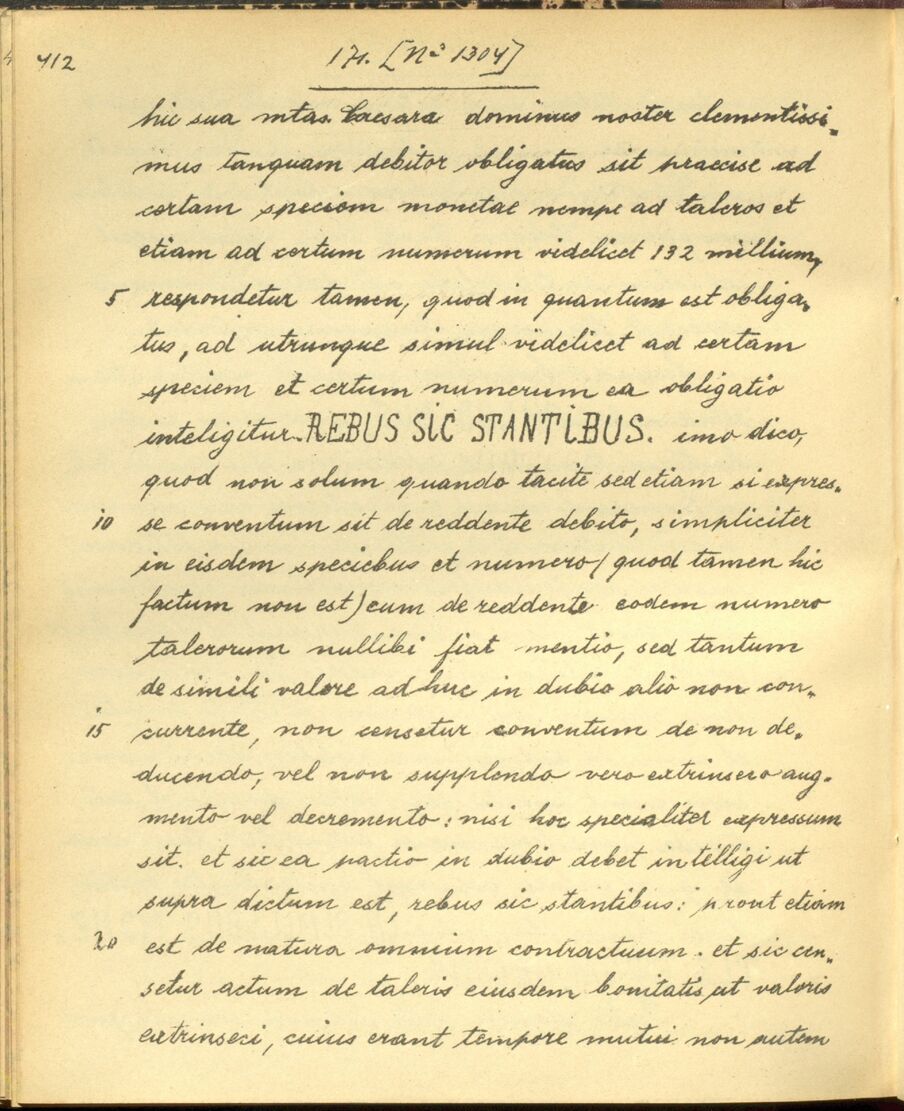 412
171. [Nº 1304]
hic sua mtas. Caesara dominus noster clementissi„
mus tanquam debitor obligatus sit praecise ad
certam speciem monetae nempe ad taleros et
etiam ad certum numerum videlicet 132 millium,
5 respondetur tamen, quod in quantum est obliga„
tus, ad utrunque simul videlicet ad certam
speciem et certum numerum ea obligatio
inteligitur. REBUS SIC STANTIBUS. imo dico,
quod non solum quando tacite sed etiam si expres„
10 se conventum sit de reddente debito, simpliciter
in eisdem speciebus et numero / quod tamen hic
factum non est) cum de reddente eodem numero
talerorum nullibi fiat mentio, sed tantum
de simili valore adhuc in dubio alio non con„
15 currente, non censetur conventum de non de„
ducendo, vel non supplendo vero extrinseco aug„
mento vel decremento: nisi hoc specialiter expressum
sit. et sic ea pactio in dubio debet intelligi ut
supra dictum est, rebus sic stantibus: prout etiam
20 est de natura omnium contractuum. et sic cen„
setur actum de taleris eiusdem bonitatis, ut valoris
extrinseci, cuius erant tempore mutui non autem